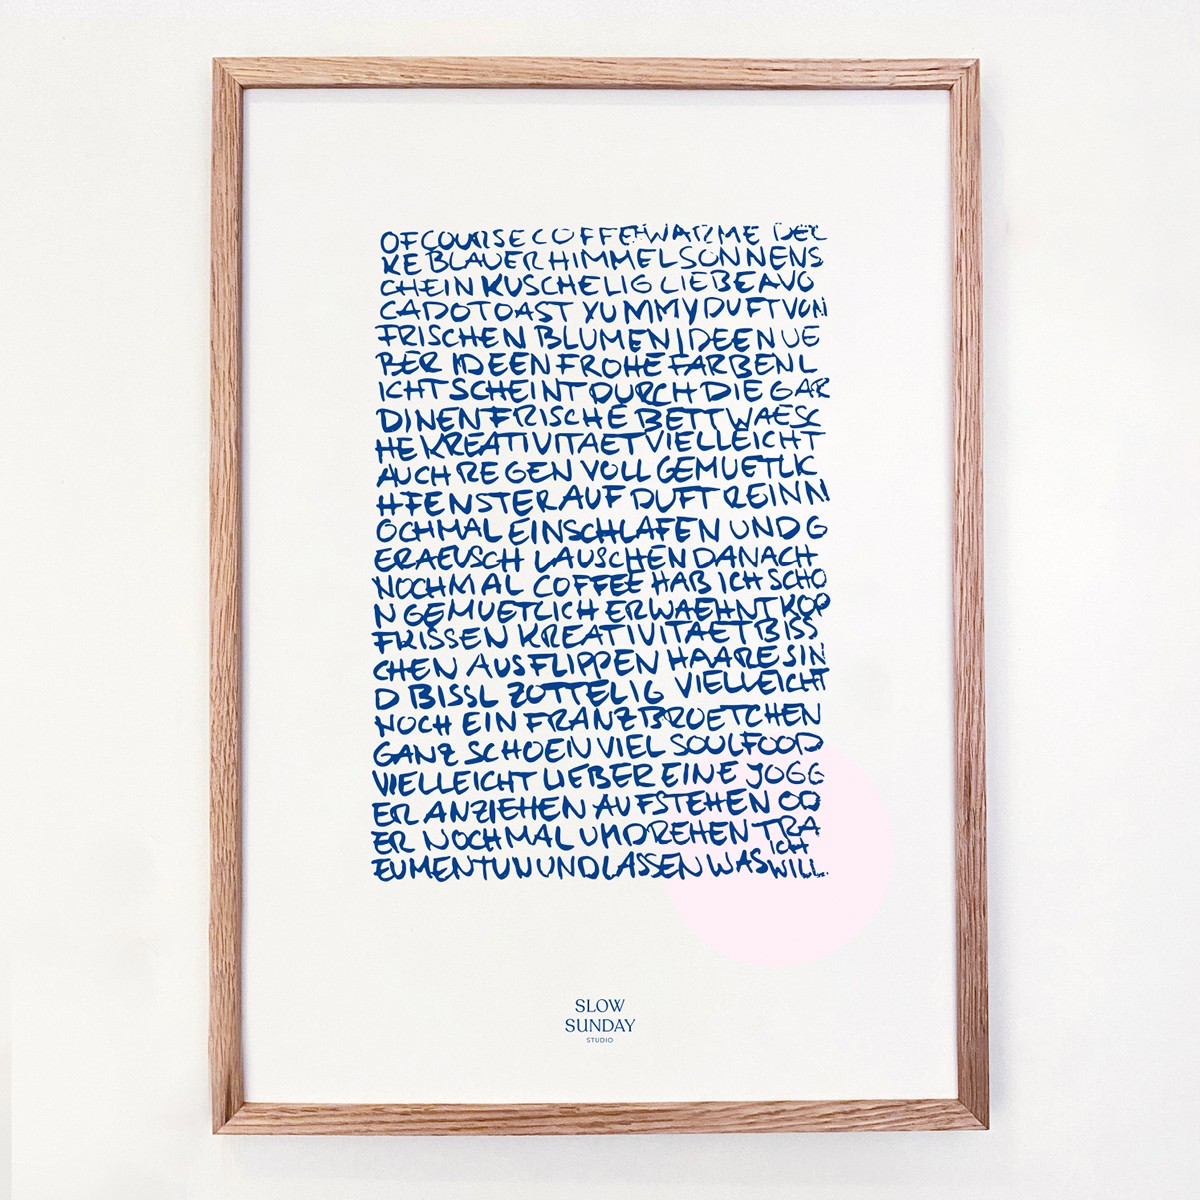 OFCOURSE COFFEE WARME DEC
KE BLAUER HIMMEL SONNENS
CHEIN KUSCHELIG LIEBE AVO
CADOTOAST YUMMY DUFT VON
FRISCHEN BLUMEN IDEEN UE
BER IDEEN FROHE FARBEN L
ICHT SCHEINT DURCH DIE GAR
DINEN FRISCHE BETTWAESC
HE KREATIVITAET VIELLEICHT
AUCH REGEN VOLL GEMUETLIC
H FENSTER AUF DUFT REIN N
OCHMAL EINSCHLAFEN UND G
ERAEUSCH LAUSCHEN DANACH
NOCHMAL COFFEE HAB ICH SCHO
N GEMUETLICH ERWAEHNT KOP
FKISSEN KREATIVITAET BISS
CHEN AUSFLIPPEN HAARE SIN
D BISSL ZOTTELIG VIELLEICHT
NOCH EIN FRANZBROETCHEN
GANZ SCHOEN VIEL SOULFOOD
VIELLEICHT LIEBER EINE JOGG
ER ANZIEHEN AUFSTEHEN OD
ER NOCHMAL UMDREHEN TRA
EUMEN TUN UND LASSEN WAS ICH WILL.
SLOW
SUNDAY
STUDIO